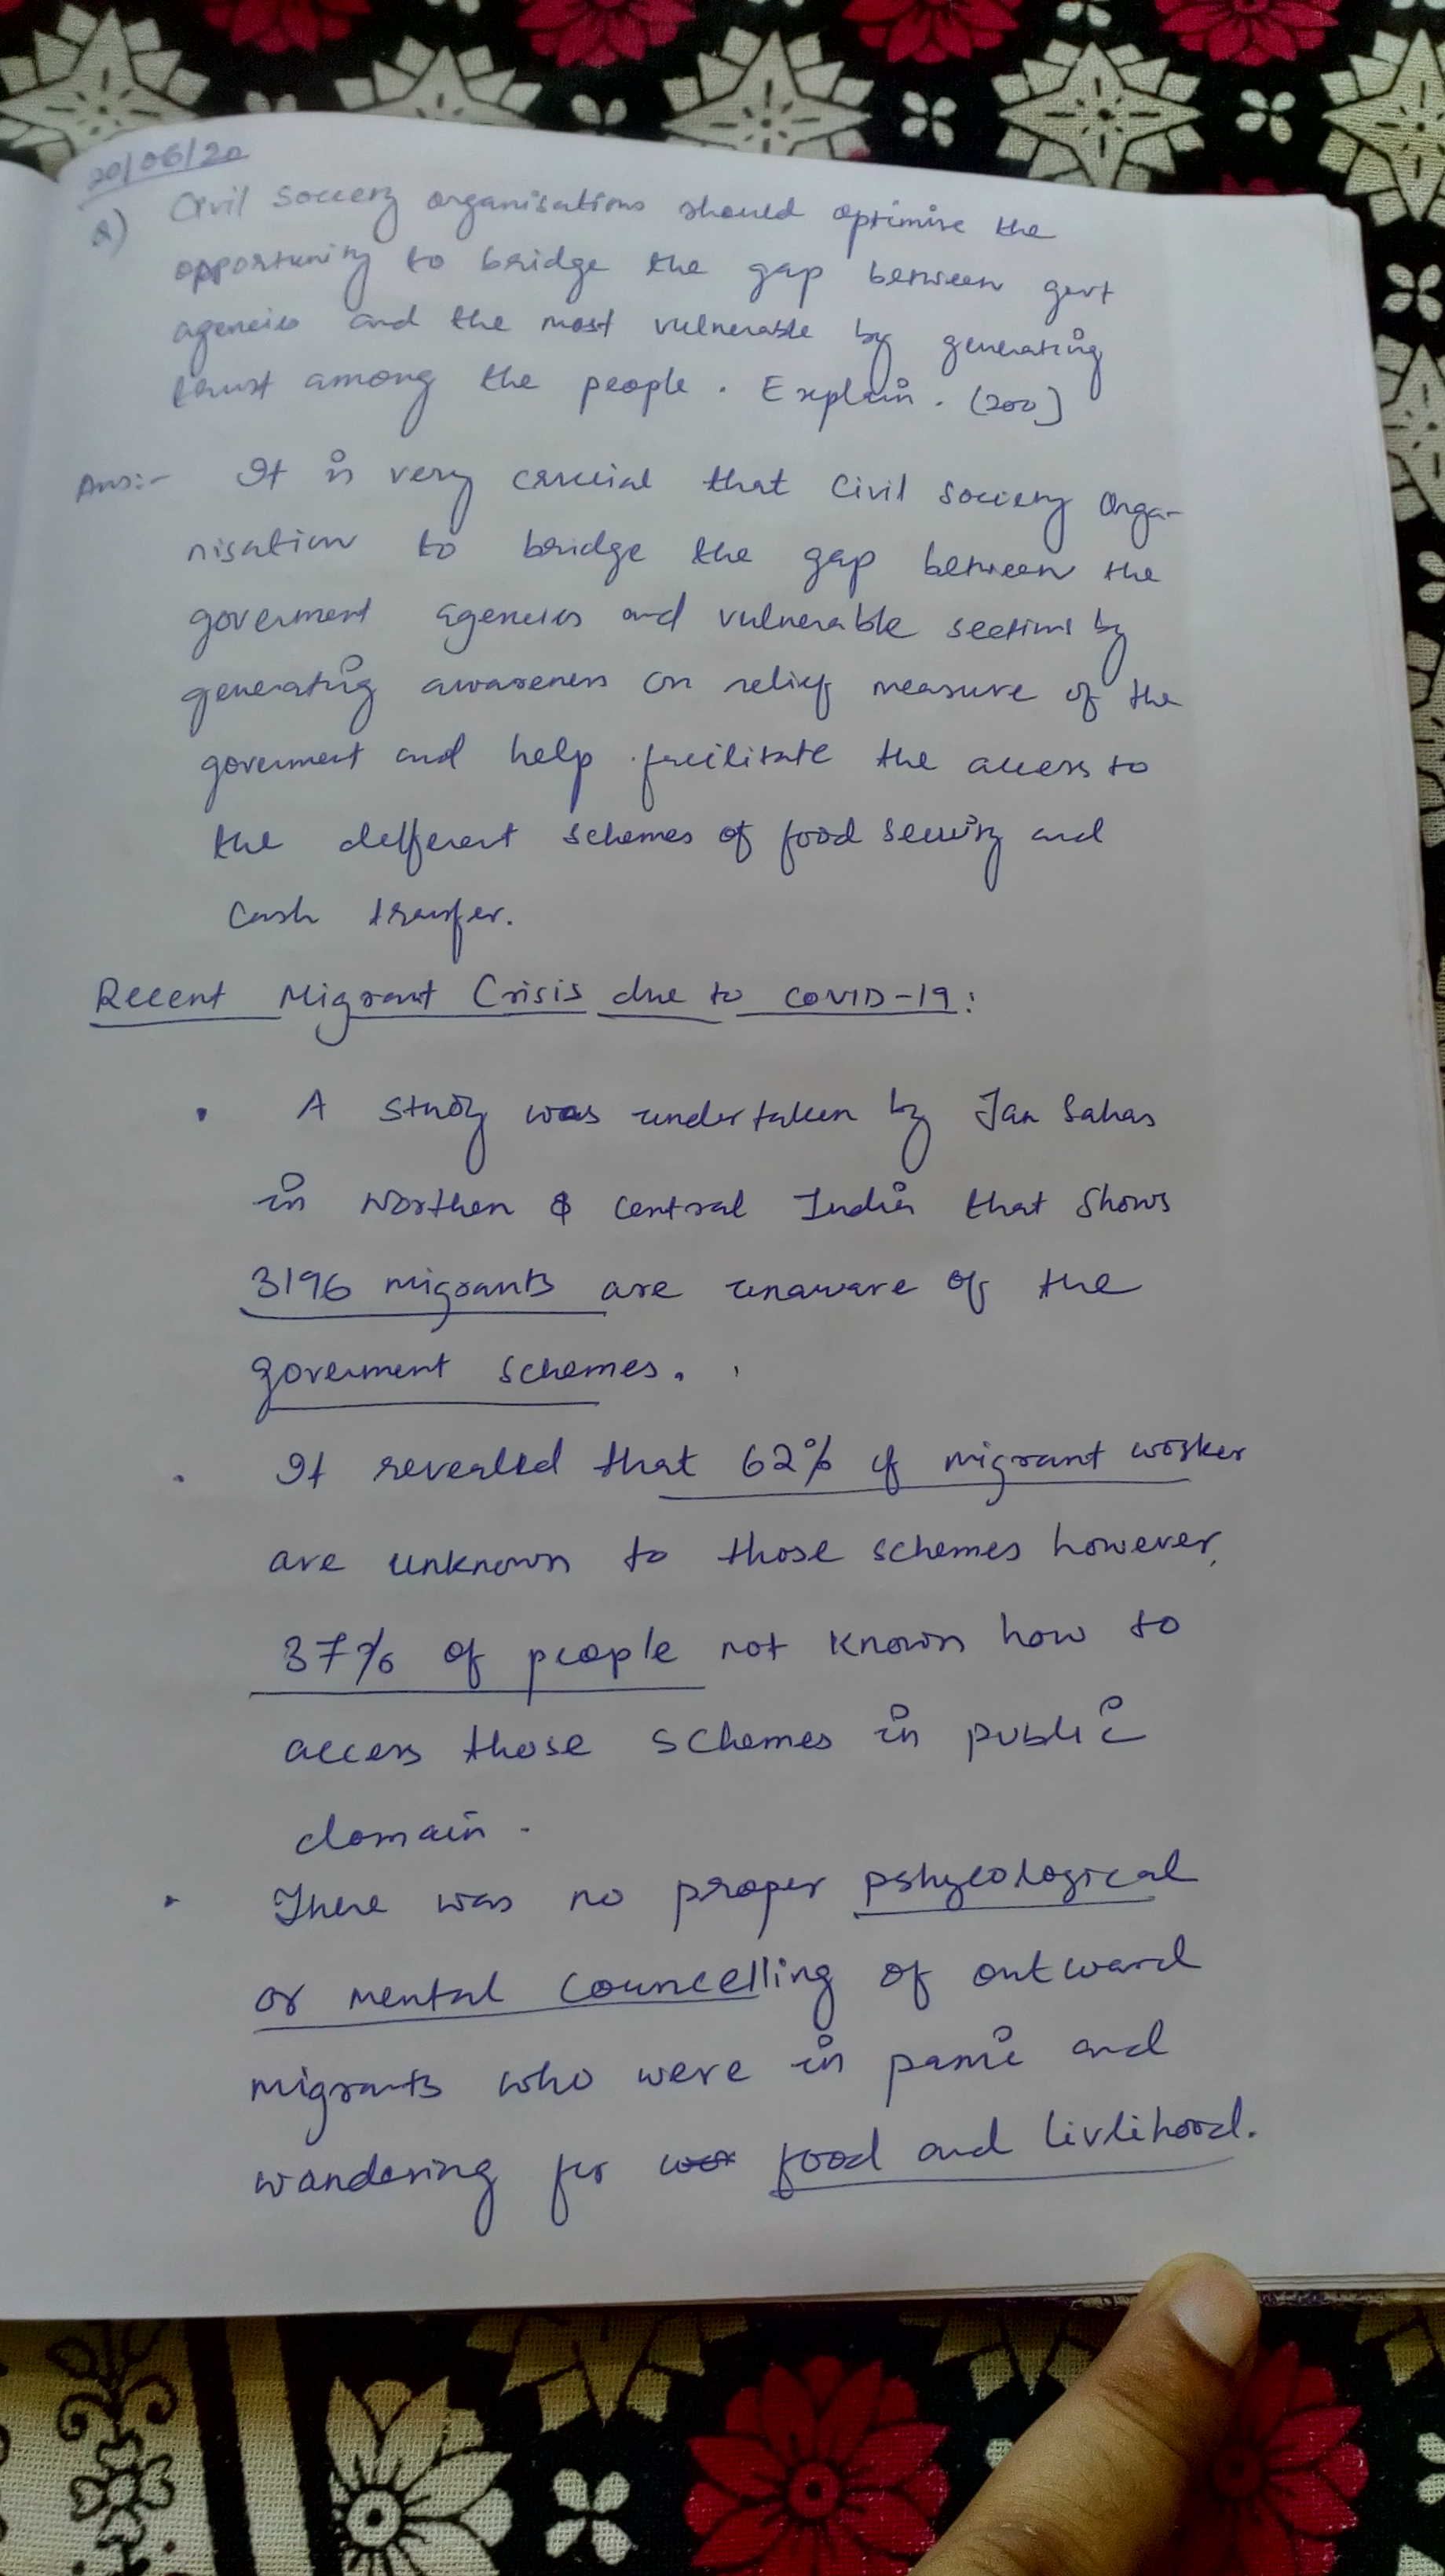 20/06/20
Q) Civil Society organisations should optimise the
opportunity to bridge the gap between govt
agencies and the most vulnerable by generating
trust among the people. Explain. (200)
Ans:- It is very crucial that Civil Society Orga-
nisation to bridge the gap between the
goverment agencies and vulnerable sections by
generating awareness on relief measure of the
goverment and help facilitate the access to
the defferent schemes of food security and
Cash transfer.
Recent Migrant Crisis due to COVID-19:
• A study was undertaken by Jan Sahas
in Northen & Central India that Shows
3196 migrants are unaware of the
goverment schemes.
• It revealed that 62% of migrant worker
are unknown to those schemes however,
37% of people not known how to
access those schemes in public
domain.
• There was no proper pshycological
or mental Councelling of outward
migrants who were in panic and
wandering for food and livlihood.